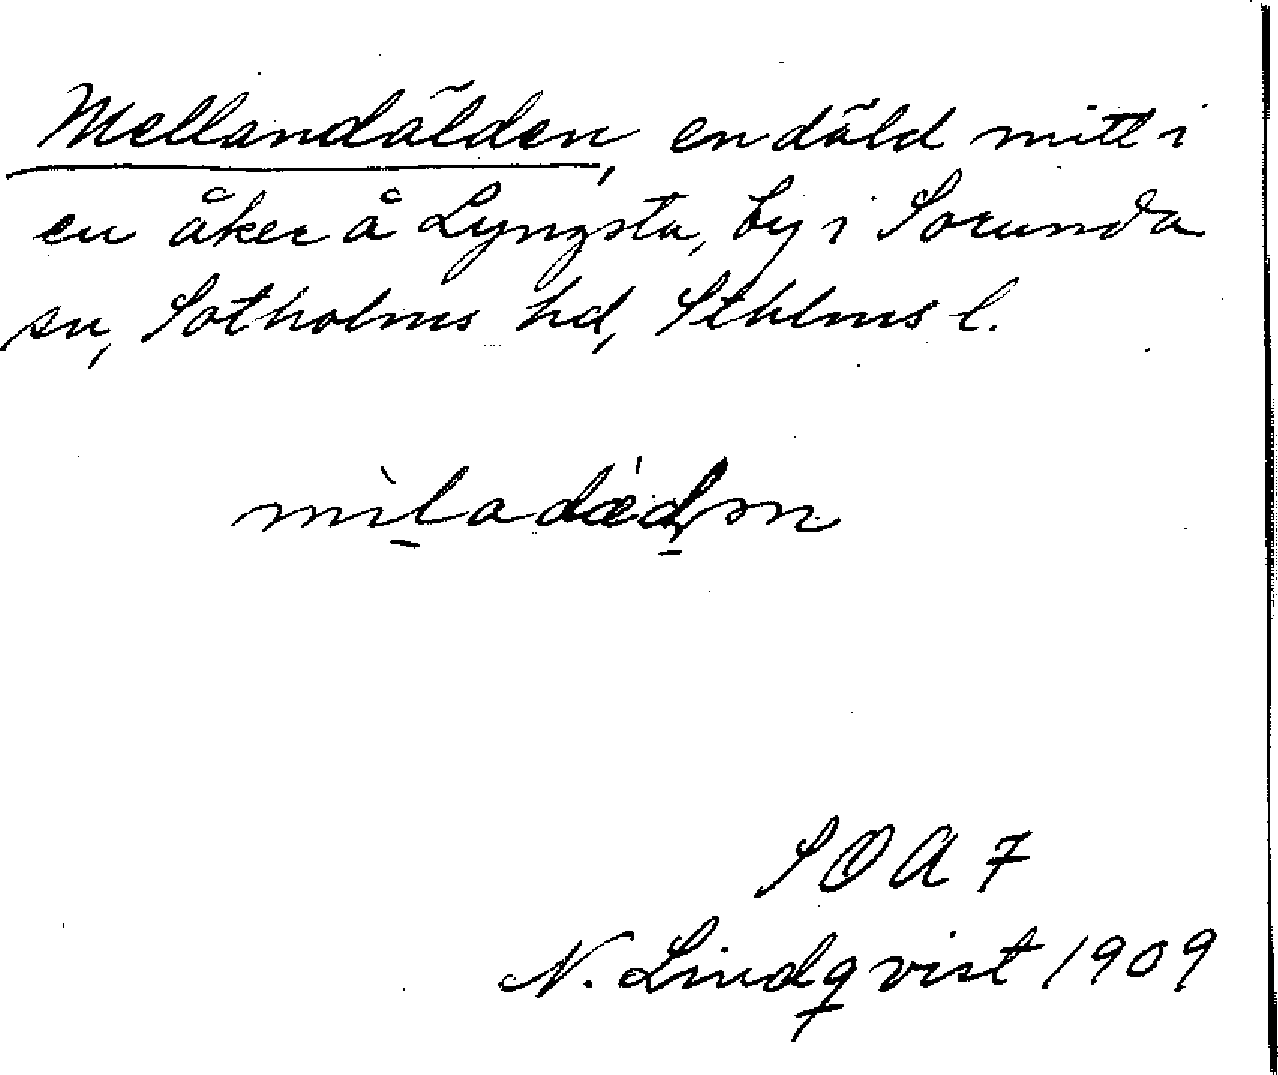 Mellandälden, en däld mitt i
en åker å Lyngsta, by i Sorunda
sn, Sotholms hd, Sthlms l.
SOA 7
N. Lindqvist 1909